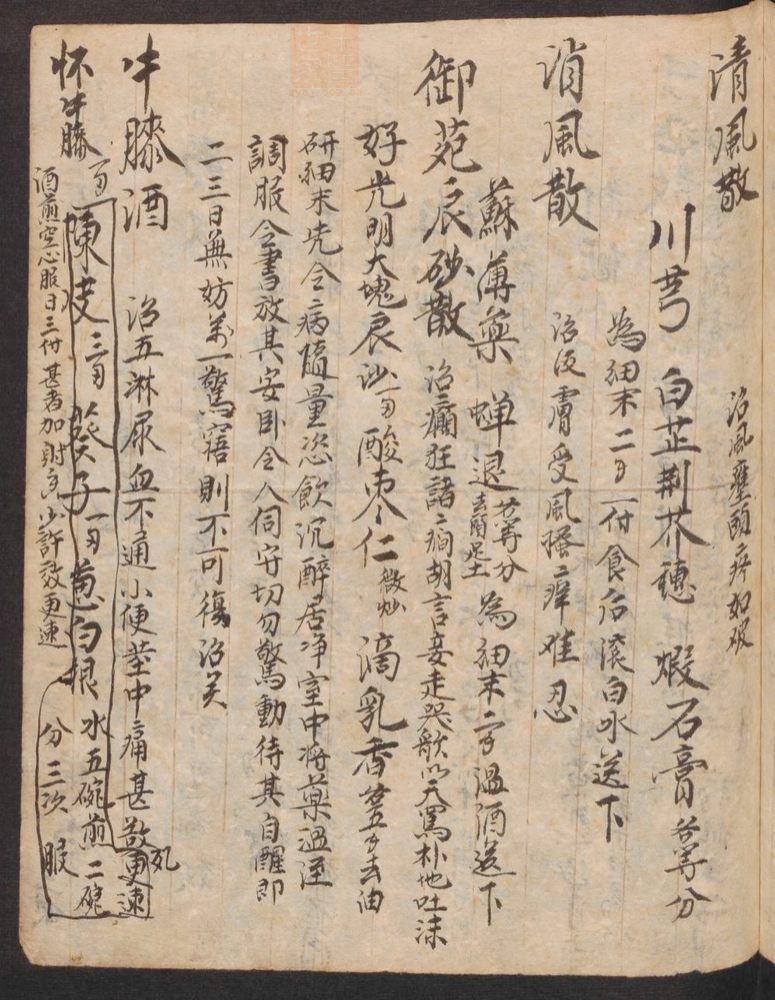 清風散
治風壅頭疼如破
川芎 白芷荆芥穗 煅石膏各等分
為細末二錢一付食后滾白水送下
消風散
治皮膚受風騷痒难忍
蘇薄藥 蝉退去翅足土 各等分 為細末二錢温酒送下
御苑辰砂散 治癲狂諸癎胡言妄走哭歌笑罵朴地吐沫
好光明大塊辰沙一两酸枣仁微炒 滴乳香各五錢去油
研細末先令病随量恣飲沉醉居净室中將藥温酒
調服令書放其安卧令人伺守切勿驚動待其自醒即
二三日無妨萬一驚寤則不可復治矣
牛膝酒 治五淋尿血不通小便莖中痛甚敬死更速
怀牛膝 一两 陳 三两 葵子一两 葱白根 水五碗煎二碗
分三次服
酒煎空心服日三付甚者加射香少許效更速